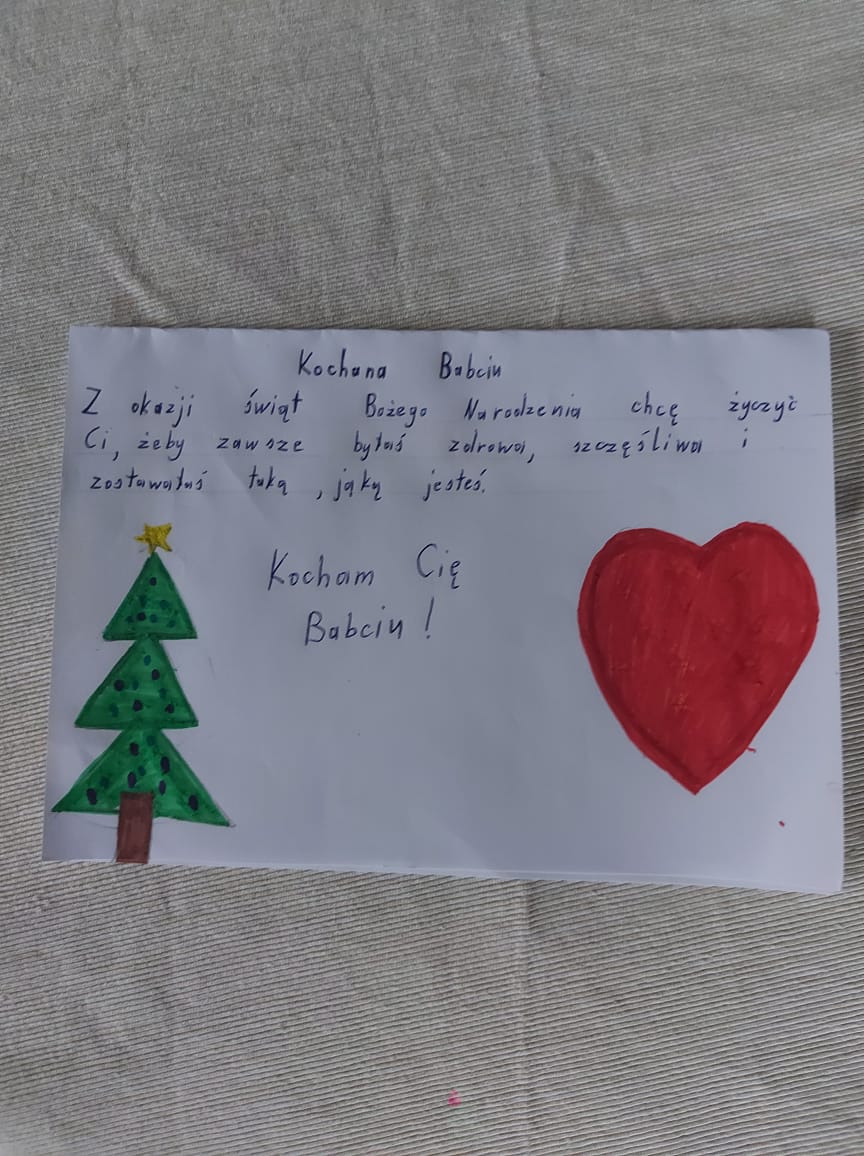 Kochana Babciu
Z okazji świąt Bożego Narodzenia chcę życzyć
Ci, żeby zawsze byłaś zdrowa, szczęśliwa i
zostawałaś taką, jąką jesteś.
Kocham Cię
Babciu!